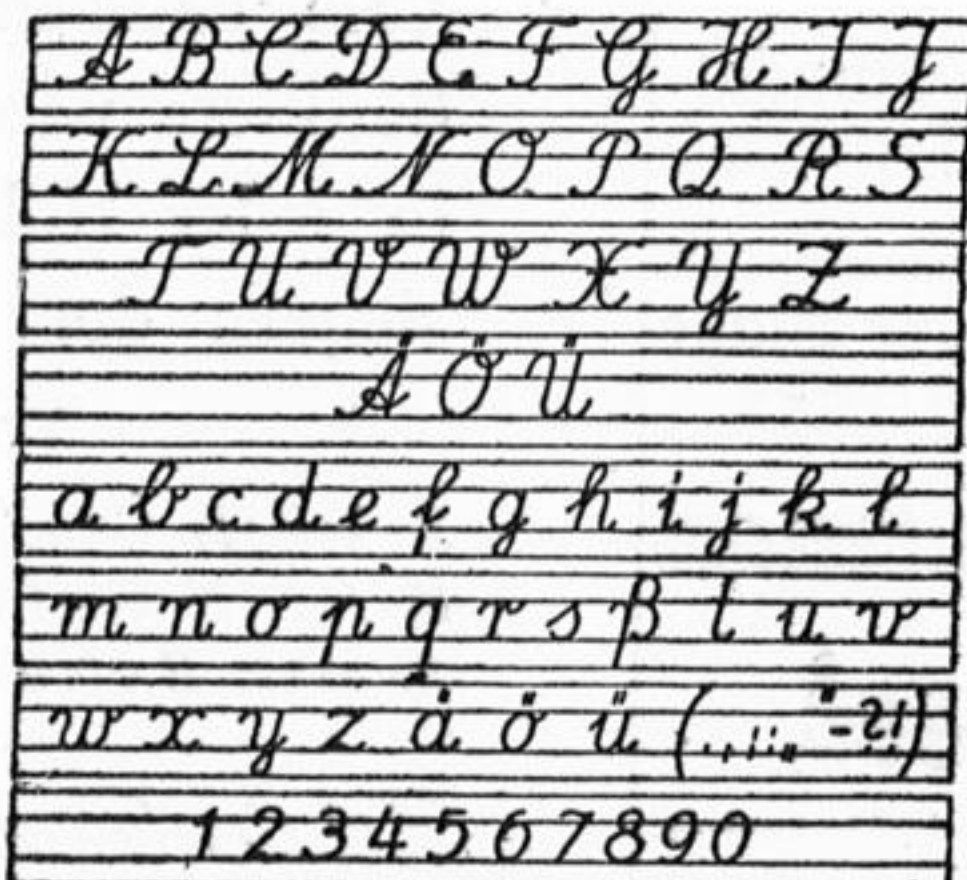 A B C D E F G H I J
K L M N O P Q R S
T U V W X Y Z
Ä Ö Ü
a b c d e f g h i j k l
m n o p q r s ß t u v
w x y z ä ö ü ( . , ! : ; „ " - ? ! )
1 2 3 4 5 6 7 8 9 0